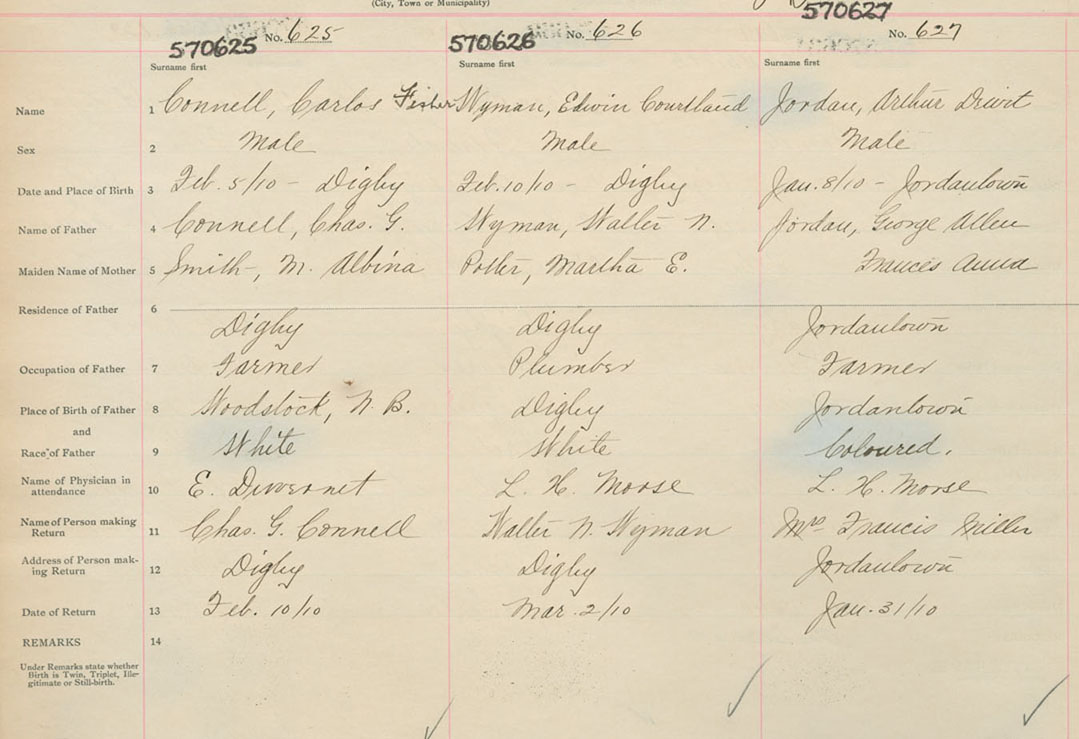 (City, Town or Municipality)
570625 No. 625 570626 No. 626 570627 No. 627
Surname first Surname first Surname first
Name 1 Connell, Carlos Fisher Wyman, Edwin Courtland Jordan, Arthur
Sex 2 Male Male Male
Date and Place of Birth 3 Feb. 5/10 - Digby Feb. 10/10 - Digby Jan. 8/10 - Jordantown
Name of Father 4 Connell, Chas. G. Wyman, Walter N. Jordan, George Allen
Maiden Name of Mother 5 Smith-, M. Albina Potter, Martha E. Frances Anna
Residence of Father 6 Digby Digby Jordantown
Occupation of Father 7 Farmer Plumber Farmer
Place of Birth of Father 8 Woodstock, N. B. Digby Jordantown
and
Race of Father 9 White White Coloured.
Name of Physician in
attendance 10 E. Duvernet L. H. Morse L. H. Morse
Name of Person making
Return 11 Chas. G. Connell Walter N. Wyman Mrs Francis Miller
Address of Person mak-
ing Return 12 Digby Digby Jordantown
Date of Return 13 Feb. 10/10 Mar. 2/10 Jan. 31/10
REMARKS 14
Under Remarks state whether
Birth is Twin, Triplet, Ille-
gitimate or Still-birth.